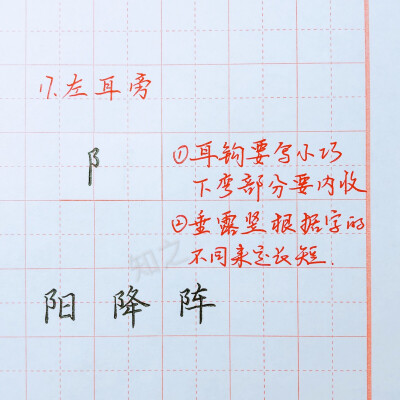 17.左耳旁
阝
①耳钩要写小巧
下弯部分要内收
②垂露竖根据字的
不同来定长短.
阳 降 阵